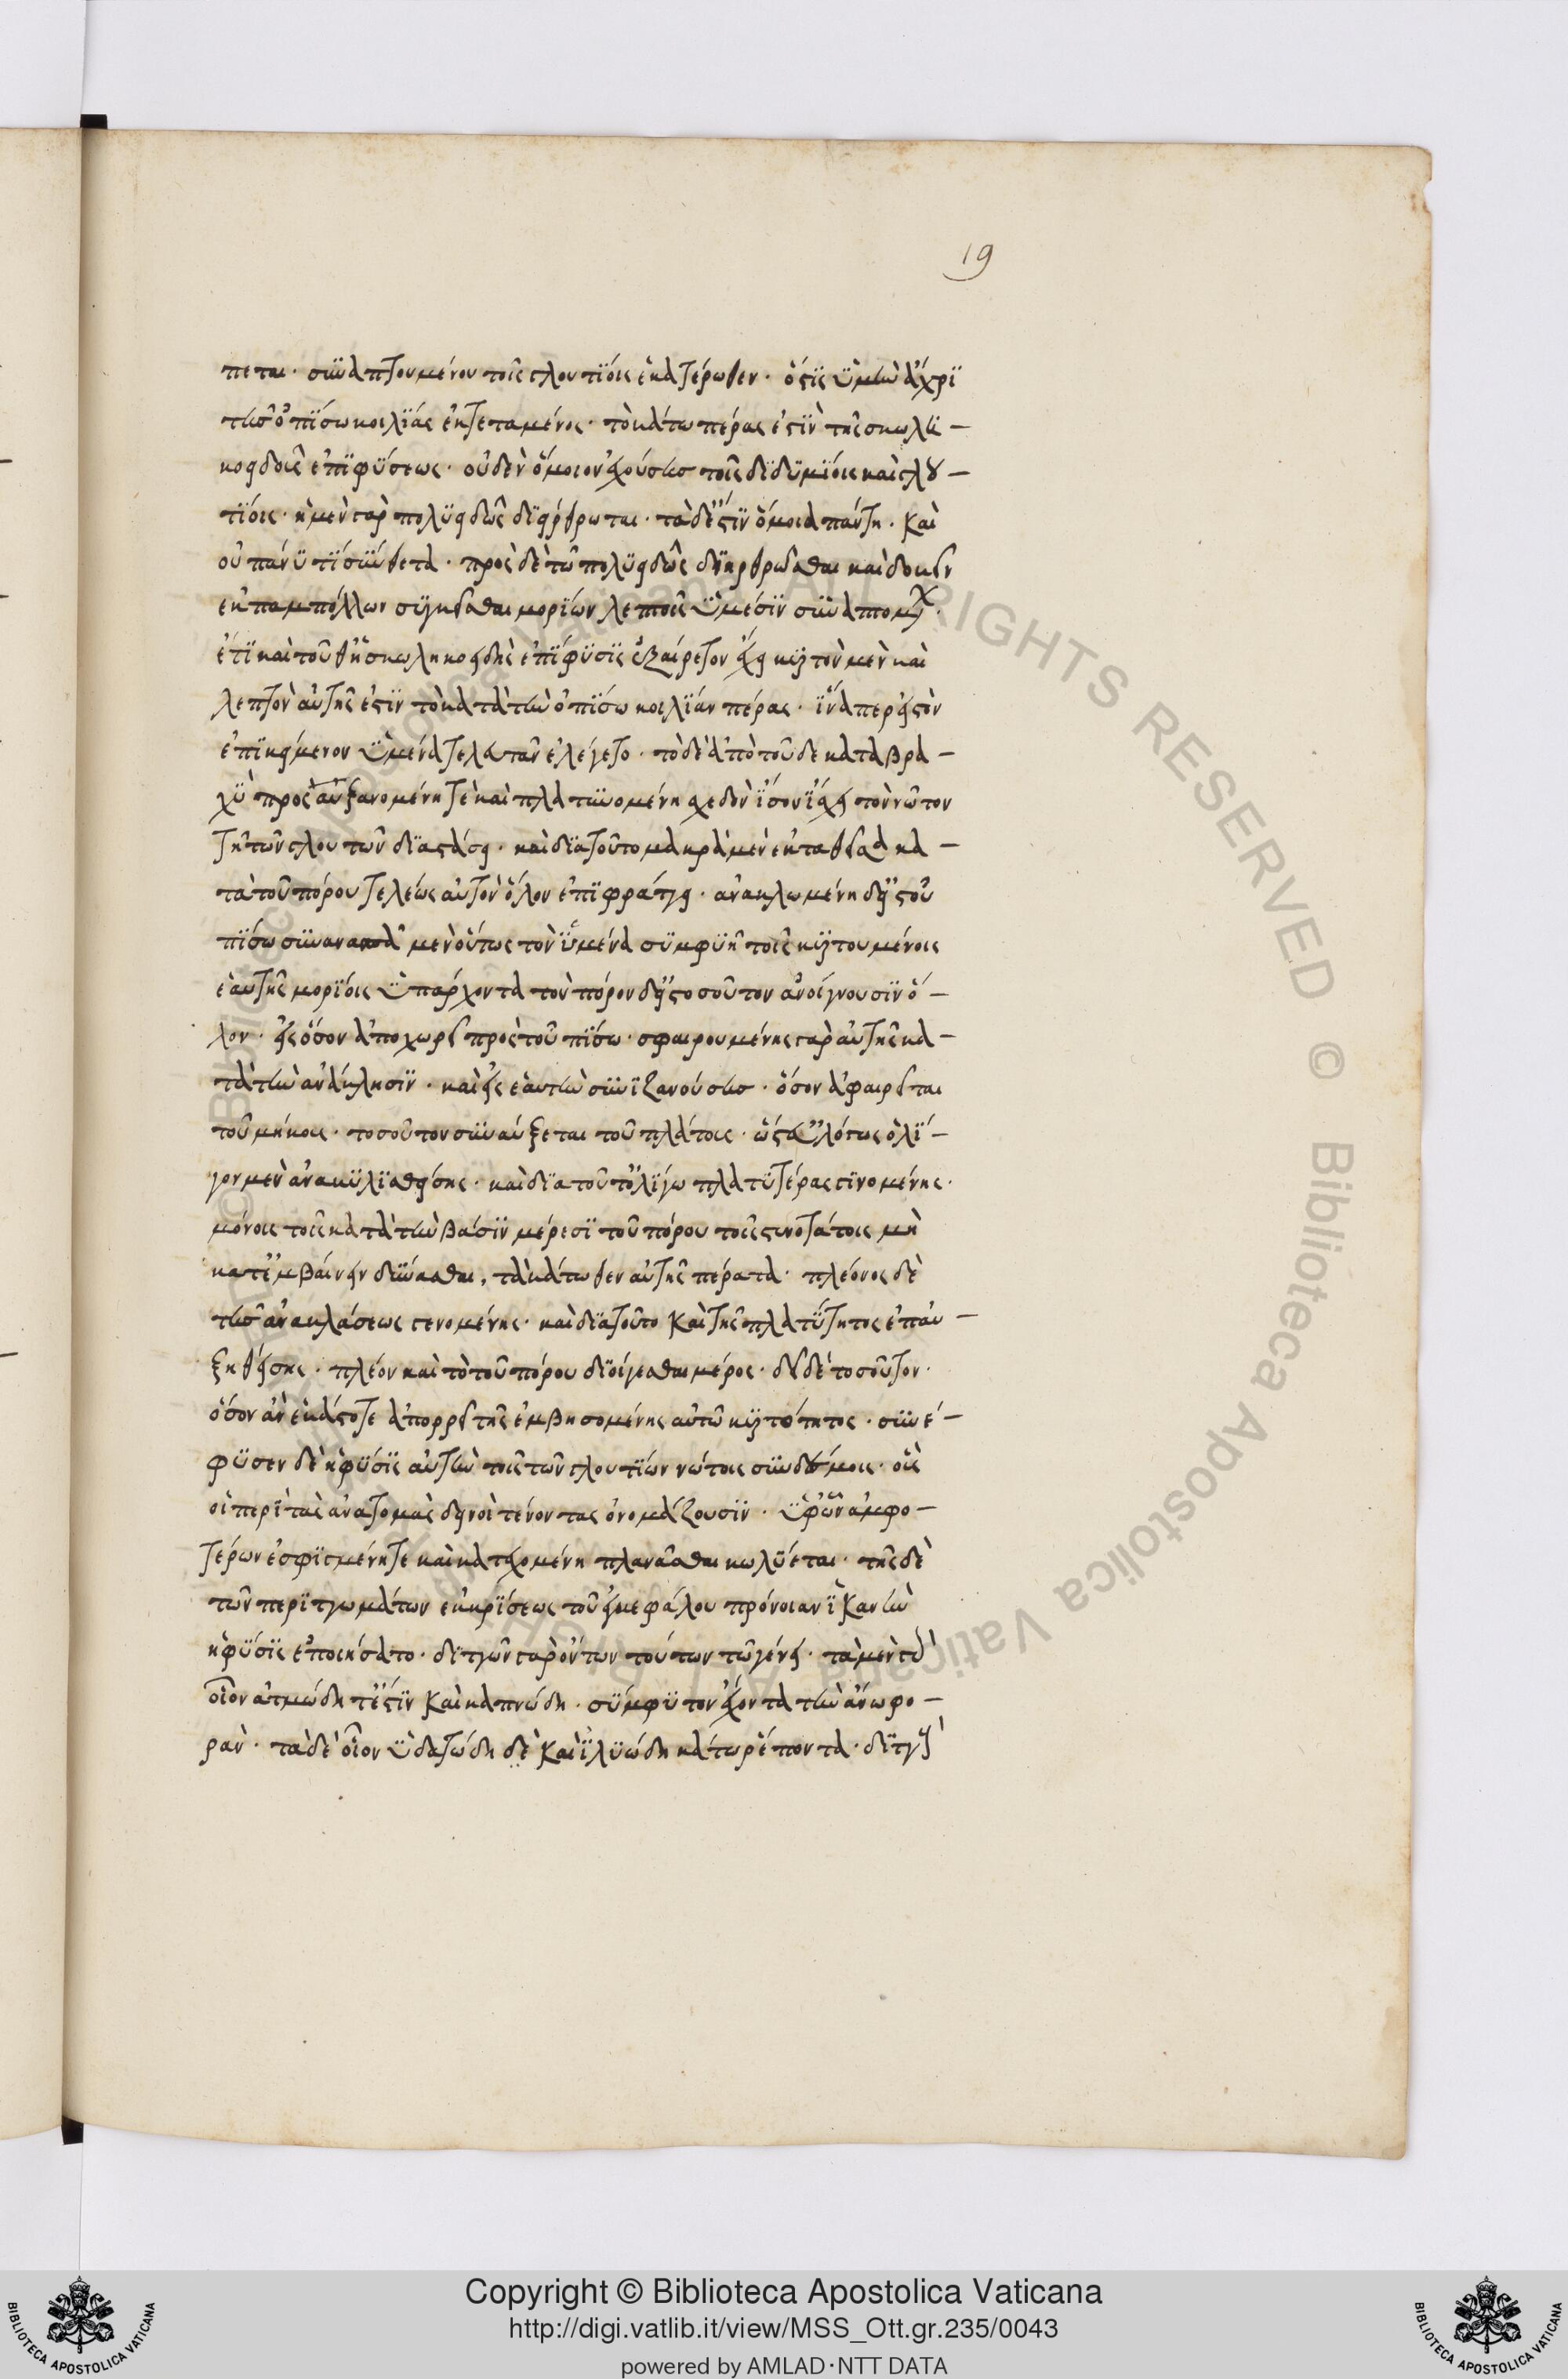 19
πεται· συναπτουμένου τοῖς γλουτίοις ἑκατέρωθεν· ὅστις ὑμὴν ἄχρι
τῆς ὀπίσω κοιλίας ἐκτεταμένος· τὸ κάτω πέρας ἐστὶν τῆς σκωλη-
κοειδοῦς ἐπιφύσεως· οὐδὲν ὅμοιον ἐχούσης τοῖς διδυμίοις καὶ γλου-
τίοις· ἡ μὲν γὰρ πολυειδῶς διήρθρωται· τὰ δ' ἐστὶν ὅμοια πάντη· καὶ
οὐ πάνυ τι σύνθετα· πρὸς δὲ τῶ πολυειδῶς διηρθρῶσθαι καὶ δοκεῖν
ἐκ παμπόλλων συγκεῖσθαι μορίων λεπτοῖς ὑμέσιν συναπτομένων·
ἔτι καὶ τοῦθ' ἡ σκωληκοειδὴς ἐπίφυσις ἐξαίρετον ἔχει κυρτὸν μὲν καὶ
λεπτὸν αὐτῆς ἐστιν τὸ κατὰ τὴν ὀπίσω κοιλίαν πέρας· ἵνα περ εἰς τὸν
ἐπικείμενον ὑμένα τελευτᾶν ἐλέγετο· τὸ δὲ ἀπὸ τοῦδε κατὰ βρα-
χὺ προσαυξανομένη τὲ καὶ πλατυνομένη σχεδὸν ἴσον ἴσχει τὸν νῶτον
τῆ τῶν γλουτῶν διαστάσει· καὶ διατοῦτο μακρὰ μὲν ἐκταθεῖσα κα-
τὰ τοῦ πόρου τελέως αὐτὸν ὅλον ἐπιφράττει· ἀνακλωμένη δ' εἰς τοὐ
πίσω συνανασπᾶ μὲν οὕτως τὸν ὑμένα συμφυῆ τοῖς κυρτουμένοις
ἑαυτῆς μορίοις ὑπάρχοντα τὸν πόρον δ' εἰς τοσοῦτον ἀνοίγνουσιν ὅ-
λον· εἰς ὅσον ἀποχωρεῖ πρὸς τοὐπίσω· σφαιρουμένης γὰρ αὐτῆς κα-
τὰ τὴν ἀνάκλησιν· καὶ εἰς ἑαυτὴν συνιζανούσης· ὅσον ἀφαιρεῖται
τοῦ μήκους· τοσοῦτον συναύξεται τοῦ πλάτους· ὥστ' εὐλόγως ὀλί-
γον μὲν ἀνακυλισθείσης· καὶ δια τοῦτ' ὀλίγω πλατυτέρας γινομένης·
μόνοις τοῖς κατὰ τὴν βάσιν μέρεσι τοῦ πόρου τοῖς στενοτάτοις μὴ
κατεμβαίνειν δύνασθαι, τὰ κάτωθεν αὐτῆς πέρατα· πλέονος δὲ
τῆς ἀνακλάσεως γενομένης· καὶ διατοῦτο καὶ τῆς πλατύτητος ἐπαυ-
ξηθείσης· πλέον καὶ τὸ τοῦ πόρου διοίγεσθαι μέρος· δεῖ δὲ τοσοῦτον·
ὅσον ἂν ἑκάστοτε ἀπορρεῖ τῆς ἐμβησομένης αὐτῶ κυρτότητος· συνέ-
φυσεν δὲ ἡ φύσις αὐτὴν τοῖς τῶν γλουτίων νώτοις συνδέσμοις· οὓς
οἱ περὶ τὰς ἀνατομὰς δεινοὶ τένοντας ὀνομάζουσιν· ὑφ' ὧν ἀμφο-
τέρων ἐσφιγμένη τε καὶ κατεχομένη πλανᾶσθαι κωλύεται· τῆς δὲ
τῶν περιττωμάτων ἐκκρίσεως τοῦ ἐγκεφάλου πρόνοιαν ἱκανὴν
ἡ φύσις ἐποιήσατο· διττῶν γὰρ ὄντων τούτων τῶ γένει· τὰ μὲν γὰρ
οἷον ἀτμώδη τ' ἐστὶν καὶ καπνώδη· σύμφυτον ἔχοντα τὴν ἄνω φο-
ράν· τὰ δὲ οἷον ὑδατώδη δὲ καὶ ἰλυώδη κάτω ῥέποντα· διττὰς
Copyright © Biblioteca Apostolica Vaticana
http://digi.vatlib.it/view/MSS_Ott.gr.235/0043
powered by AMLAD·NTT DATA
BIBLIOTECA APOSTOLICA VATICANA
BIBLIOTECA APOSTOLICA VATICANA